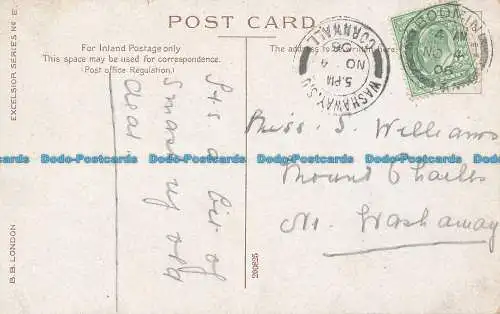 POST CARD.
For Inland Postage only
This space may be used for correspondence.
(Post office Regulation.)
The address to be written here.
EXCELSIOR SERIES No E.
B.B. LONDON
290625
WASHAWAY S.O
CORNWALL
5. PM
NO 4
05
BODMIN
NO 4
05
It's a bit of
old
dear.
Miss. S. Williams
Mount Charles
Nr. Washaway
Dodo-Postcards Dodo-Postcards Dodo-Postcards Dodo-Postcards Dodo-Postcards